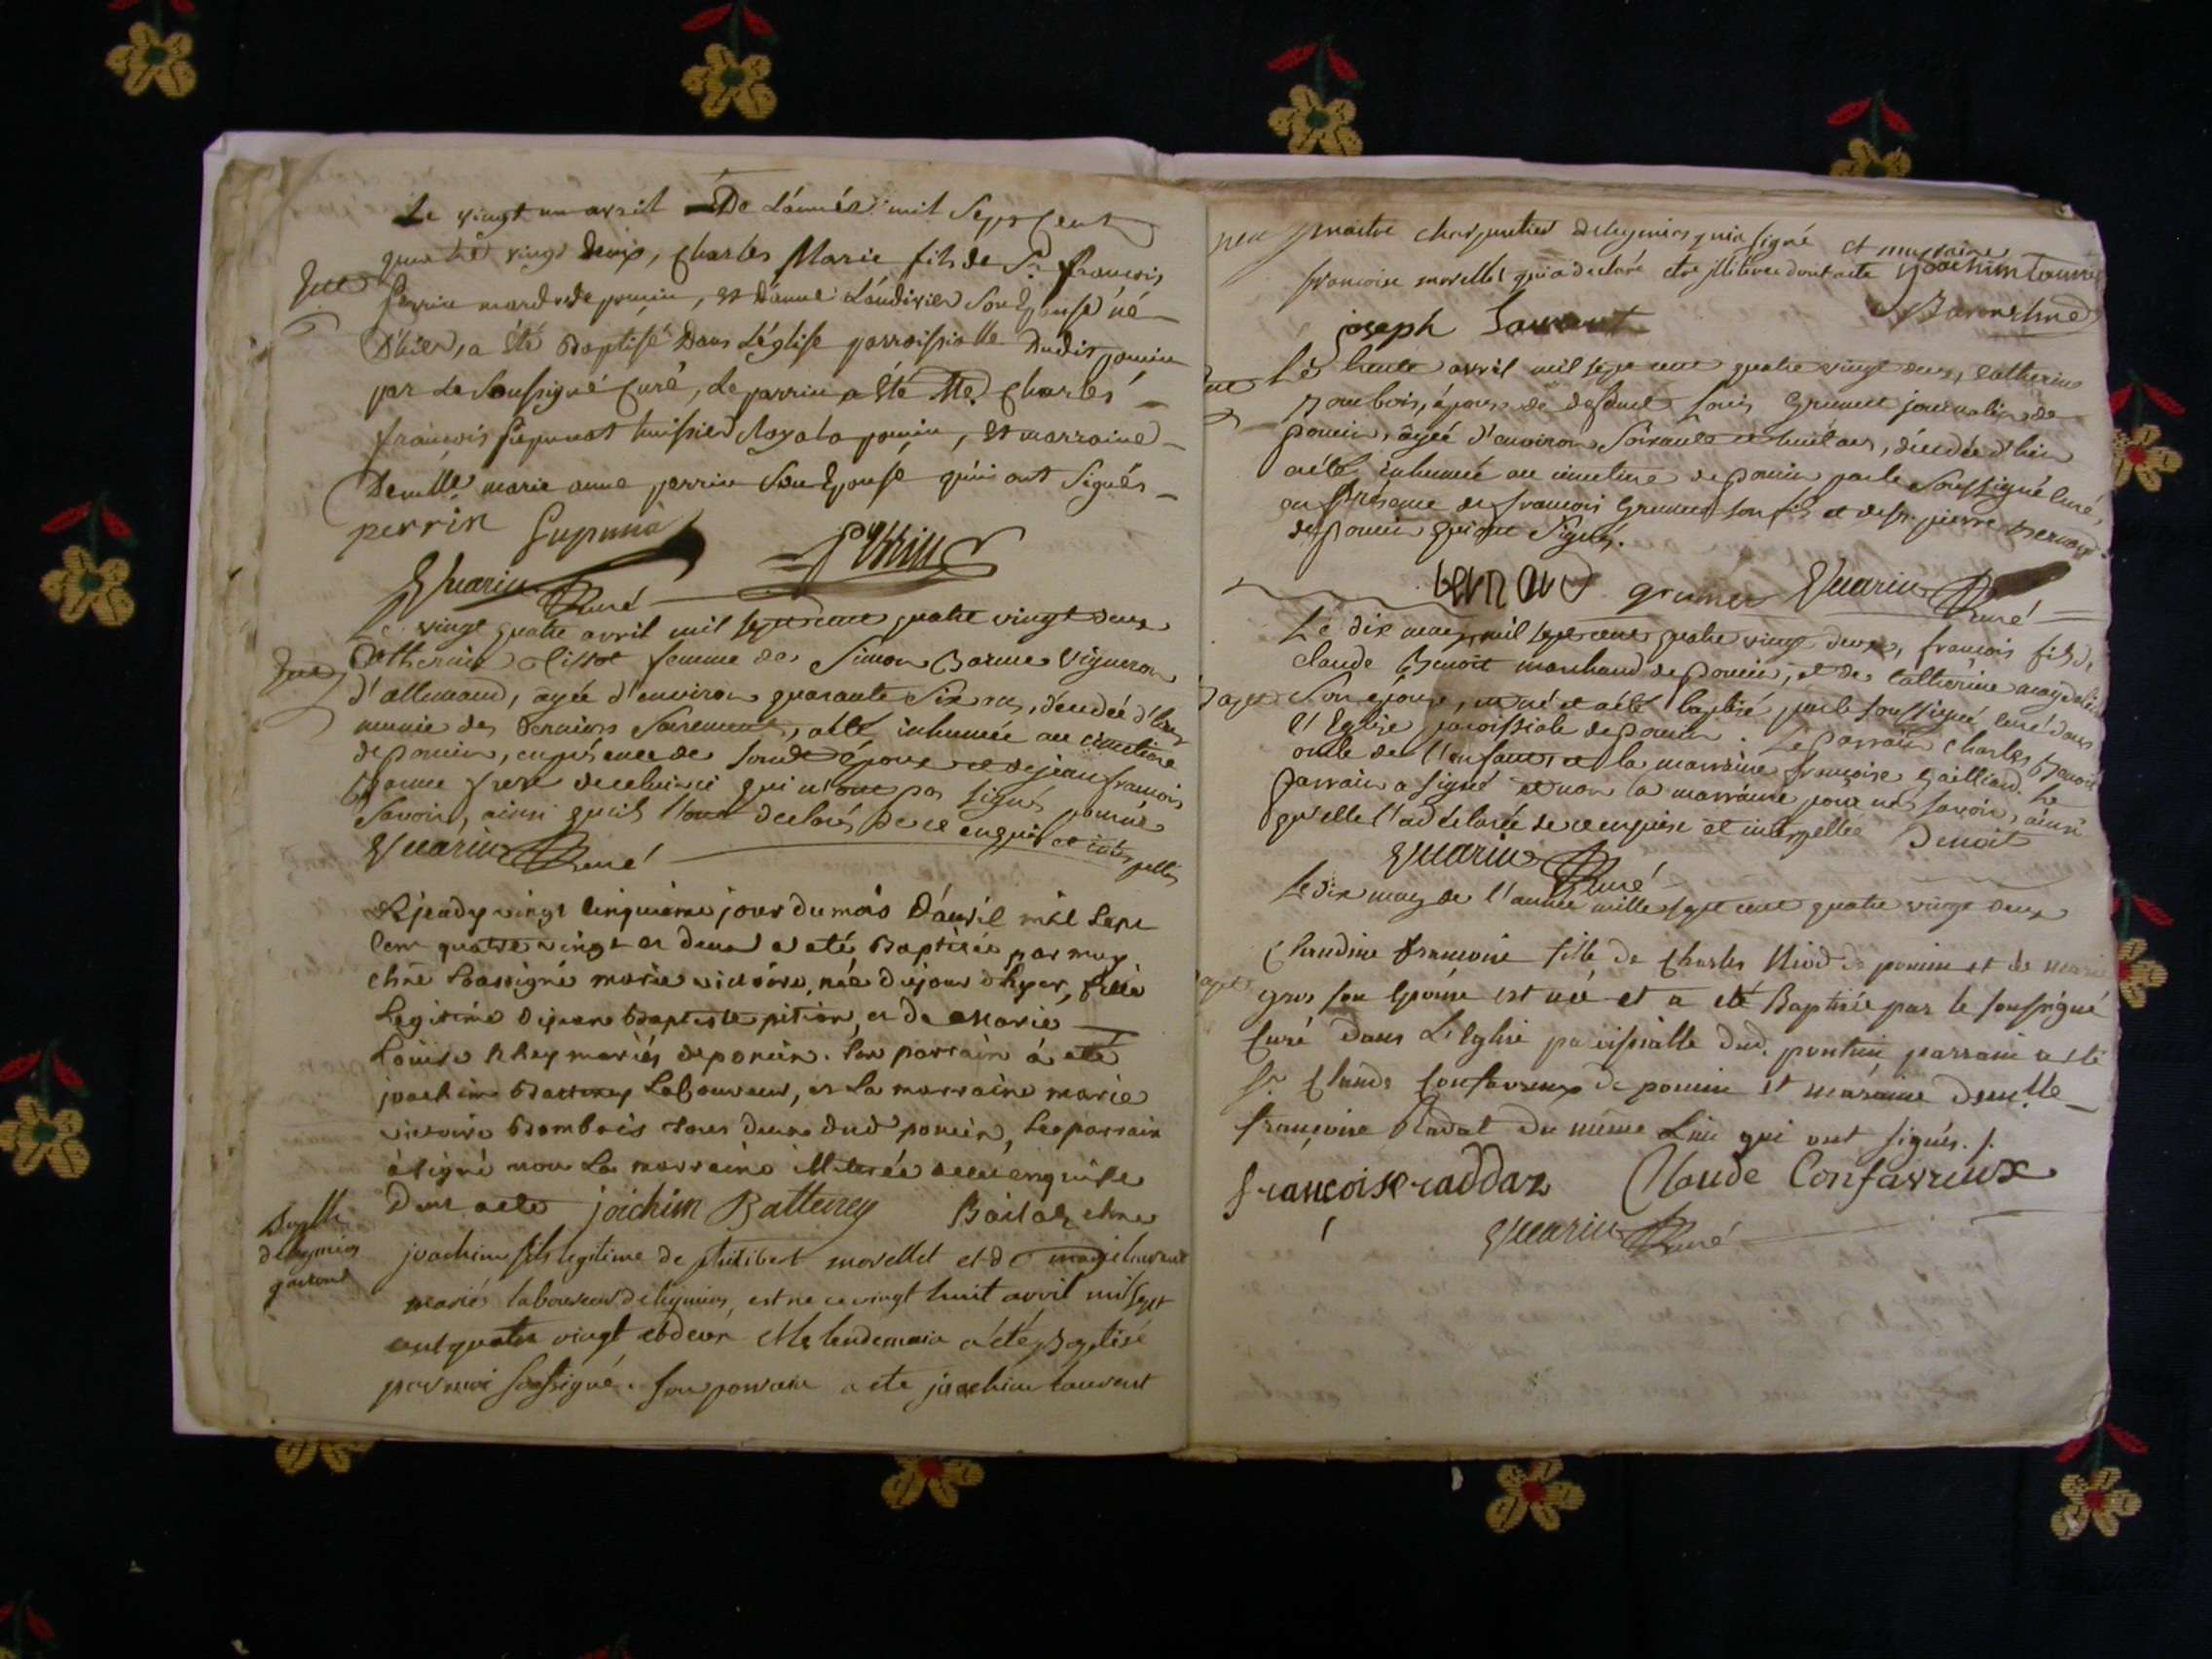 Le vingt un avril De L'année mil Sept Cent
quatre vingt Deux, Charles Marie fils de Sr. françois
Perrin mard. de poncin, et Danne Landivier Son Epouse né
D'hier, a été Baptisé Dans L'église parroissialle Dudit poncin
par Le Soussigné Curé, Le parrin a été Me. Charles
françois huissier Royal a poncin, et marraine
Demlle. marie anne perrin Son Epouse qui ont Signés
perrin perrin
Guarin Curé
Le vingt quatre avril mil sept cent quatre vingt deux
Catherine Tissot femme de Simon Barme Vigneron
d'allemand, agée d'environ quarante Six ans, décédée d'hier
munie des derniers Sacrements, a été inhumée au cimetiere
de poncin, en présence de Sondit époux et de jean françois
Barme frere de celui ci qui n'ont pas Signés pour ne
Savoir, ainsi qu'ils l'ont déclarés de ce enquis et interpellés
Guarin Curé
Le jeudy vingt Cinquieme jour du mois D'avril mil Sept
Cent quatre vingt et deux a eté Baptisée par moy
chne Soussigné marie victoire, née du jour d'hyer, fille
Legitime de jean Baptiste pition, et de Marie
Louise Rhey mariés de poncin. Son parrain á eté
joachim Batterey Laboureur, et La marraine marie
victoire Bombois tous deux dud poncin, Le parrain
à signé non La marraine illiterée de ce enquise
Dont acte joichim Batterey chne
joachim fils legitime de philibert morellet et de marie laurent
mariés laboureurs de leymiat, est né ce vingt huit avril mil sept
cent quatre vingt et deux et le lendemain a été Baptisé
par moi Soussigné. Son parrain a été joachim laurent
maitre charpentier de leymiat qui a signé et marraine
françoise morellet qui a declaré etre illiterée dont acte joachim laurent
joseph Laurent
Le trente avril mil sept cent quatre vingt deux, catherine
Bombois, épouse de defunct Louis Grumet journalier de
Poncin, agée d'environ Soixante et huit ans, décédée d'hier
a été inhumée au cimetiere de Poncin par le Soussigné Curé,
en présence de françois Grumet son fils et de Sr. pierre Bernard
de Poncin qui ont Signés.
bernard grumet Guarin Curé
Le dix may mil sept cent quatre vingt deux, françois fils de
claude Benoit marchand de Poncin, et de Catherine
Son épouse, est né et a été baptisé par le soussigné curé dans
l'Eglise paroissiale de Poncin. Le Parrain Charles Benoit
oncle de l'enfant et la marraine françoise Gailliard. Le
Parrain a signé et non la marraine pour ne savoir, ainsi
qu'elle l'a déclarée de ce enquise et interpellée Benoit
Guarin Curé
Le dix may de l'année mille sept cent quatre vingt deux
Claudine françoise fille de Charles Niod de poncin et de marie
gros son Epouse est née et a été Baptisée par le soussigné
Curé dans L'Eglise paroissialle dud. poncin parrain a été
Sr. Claude Confavreux de poncin et maraine demlle
françoise Radat du même Lieu qui ont signés.
françoise raddaz Claude Confavreux
Guarin Curé